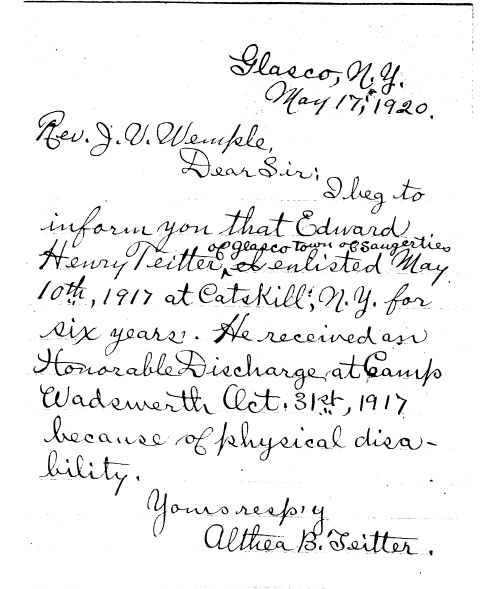 Glasco, N.Y.
May 17, 1920.
Rev. J. V. Wemple,
Dear Sir;
I beg to
inform you that Edward
of Glasco town of Saugerties
Henry Teitter, enlisted May
10th, 1917 at Catskill, N.Y. for
six years. He received an
Honorable Discharge at Camp
Wadswerth Oct. 31st, 1917
because of physical disa-
bility.
Yours resp'y
Althea B. Teitter.